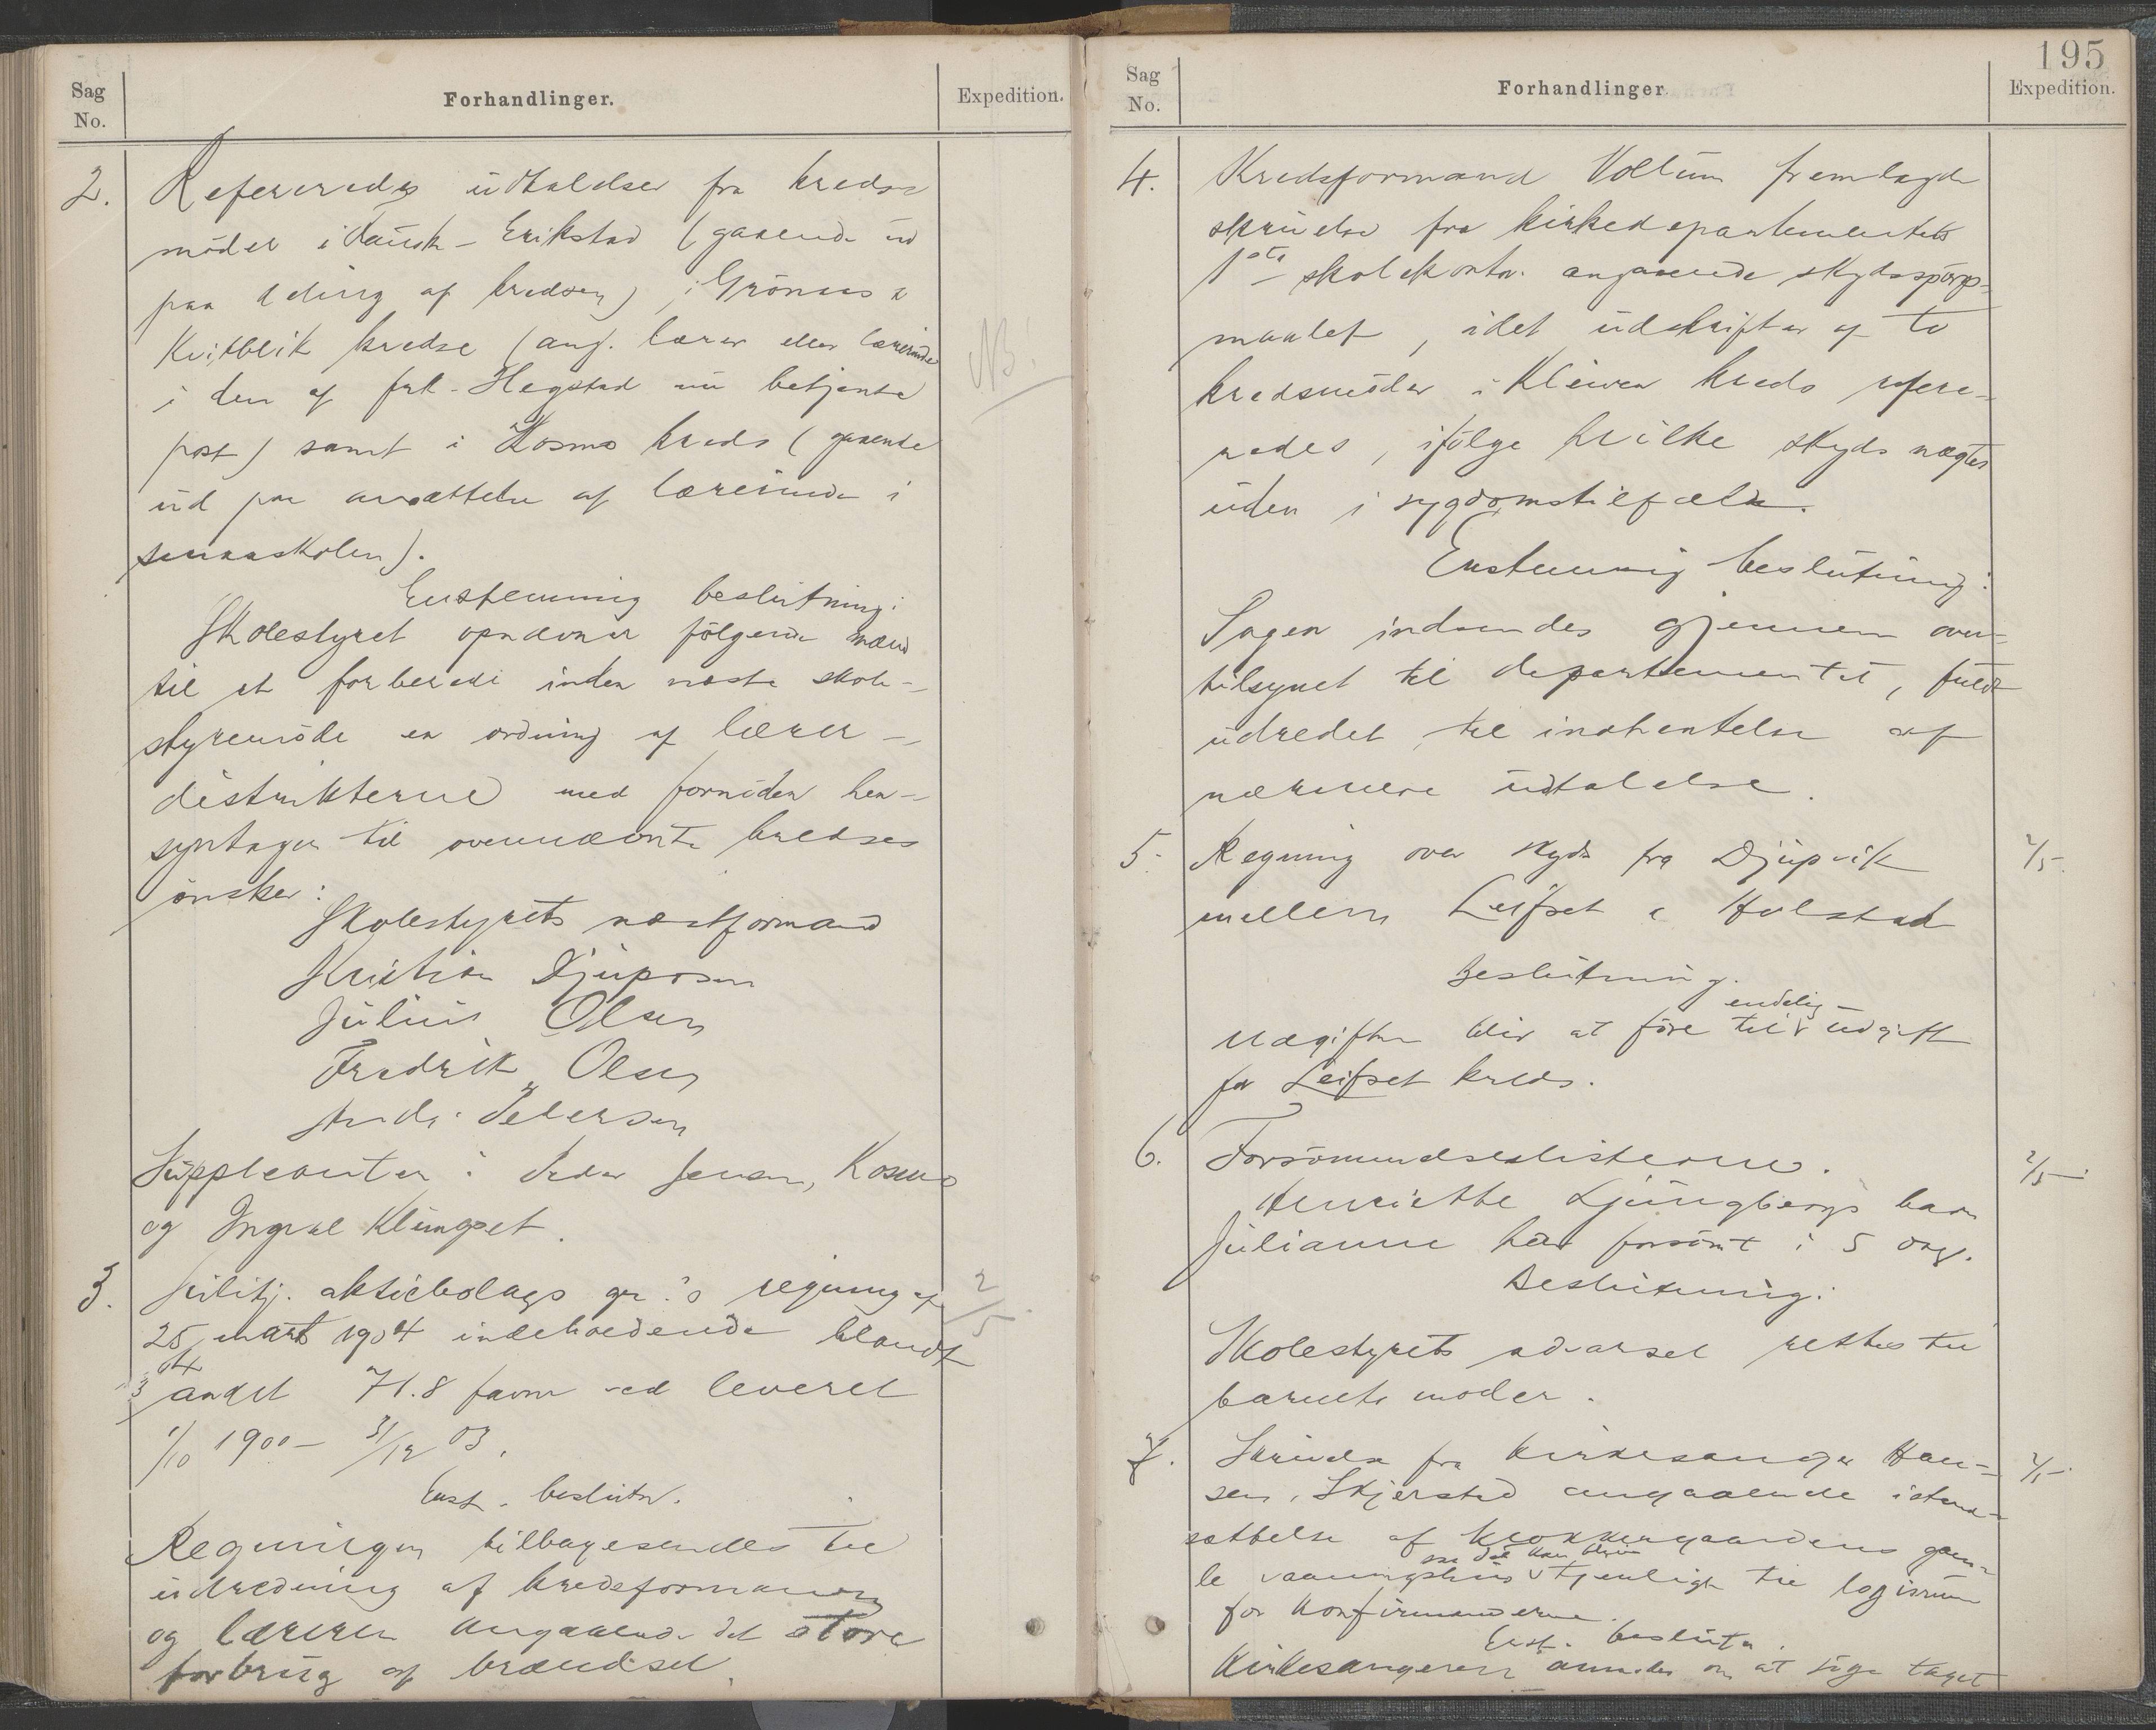 Sag
No.
Forhandlinger.
Expedition.
2.
Refereredes udtalelser fra kreds-
møder i Vausk-Erikstad (gaaende ud
paa deling af kredsen), i Grönaas &
Kvitblik kredse (ang. lærer eller lærerinde
i den af frk. Hegstad nu betjente
post) samt i Kosmo kreds (gaaende
ud paa ansættelse af lærerinde i
smaaskolen).
NB!
Enstemmig beslutning:
Skolestyret opnævner følgende mænd
til at forberede inden næste skole-
styremöde en ordning af lærer-
distrikterne med fornøden hen-
syntagen til ovennævnte kredses
ønsker:
Skolestyrets næstformand
Kristian Djuposen
Julius Olsen
Fredrik Olsen
Andr. Petersen
Suppleanter: Peder Jensen, Kosmo
og Ingval Klungset.
3.
Sulitj. aktiebolags gr.'s regning af
25 marts 1904 indeholdende blandt
andet 71.8 favne ved leveret
1/10 1900 - 31/12 03.
2/5
Enst. beslutn.
Regningen tilbagesendes til
udredning af kredsformanden
og læreren angaaende det store
forbrug af brændsel.
195
Sag
No.
Forhandlinger
Expedition.
4.
Kredsformand Voltum fremlagde
skrivelse fra kirkedepartementets
1ste skolekontor angaaende skydsspørgs-
maalet, idet udskrifter af to
kredsmøder i Klæiven kreds refere-
redes, ifølge hvilke skyds nægtes
uden i sygdomstilfælde.
Enstemmig beslutning:
Sagen indsendes gjennem over-
tilsynet til departementet, fuldt
udredet, til indhentelse af
nærmere udtalelse.
5.
Regning over skyds fra Djupvik
mellem Leifset & Holstad
2/5
Beslutning.
endelig
Udgiften blir at føre til udgift
for Leifset kreds.
6.
Forsømmelseslisterne.
2/5
Henriette Ljungbergs barn
Julianne har forsømt i 5 dag.
Beslutning:
Skolestyrets advarsel rettes til
barnets moder.
7.
Skrivelse fra kirkesanger Han-
2/5
sen, Skjerstad angaaende istand-
sættelse af klokkergaardens gam-
saa det kan blive
le vaaningshus tjenligt til logisrum
for konfirmanderne.
Enst. beslutn.
Kirkesangeren anmodes om at söge taget